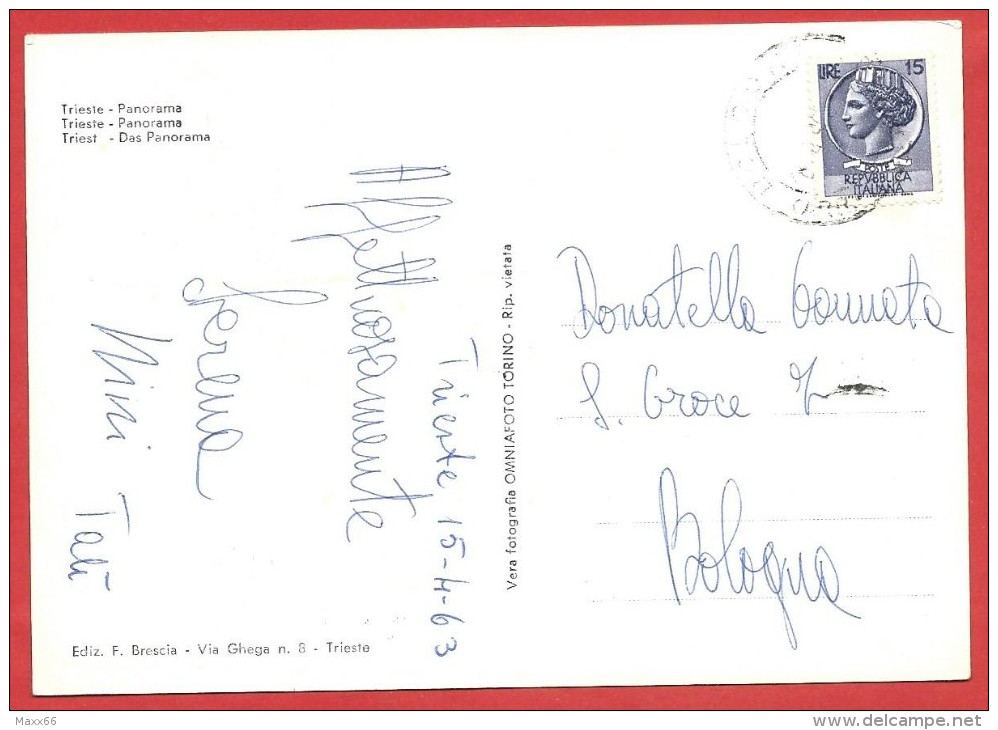 Trieste - Panorama
Trieste - Panorama
Triest - Das Panorama
LIRE 15
POSTE
REPVBBLICA
ITALIANA
Trieste, 15-4-63
Affettuosamente
Mini Tati
Vera fotografia OMNIAFOTO TORINO - Rip. vietata
Donatella Connata
S. Croce 7
Bologna
Ediz. F. Brescia - Via Ghega n. 8 - Trieste
Maxx66
www.delcampe.net